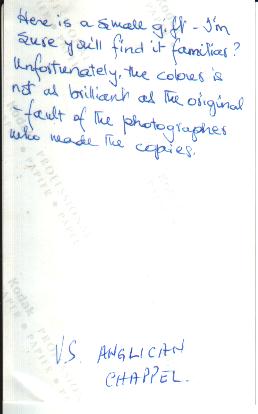 Here is a small gift - I'm
sure you'll find it familiar?
Unfortunately, the colour is
not as brilliant as the original
- fault of the photographer
who made the copies.
Kodak
PROFESSIONAL
PAPER
V.S. ANGLICAN
CHAPPEL.